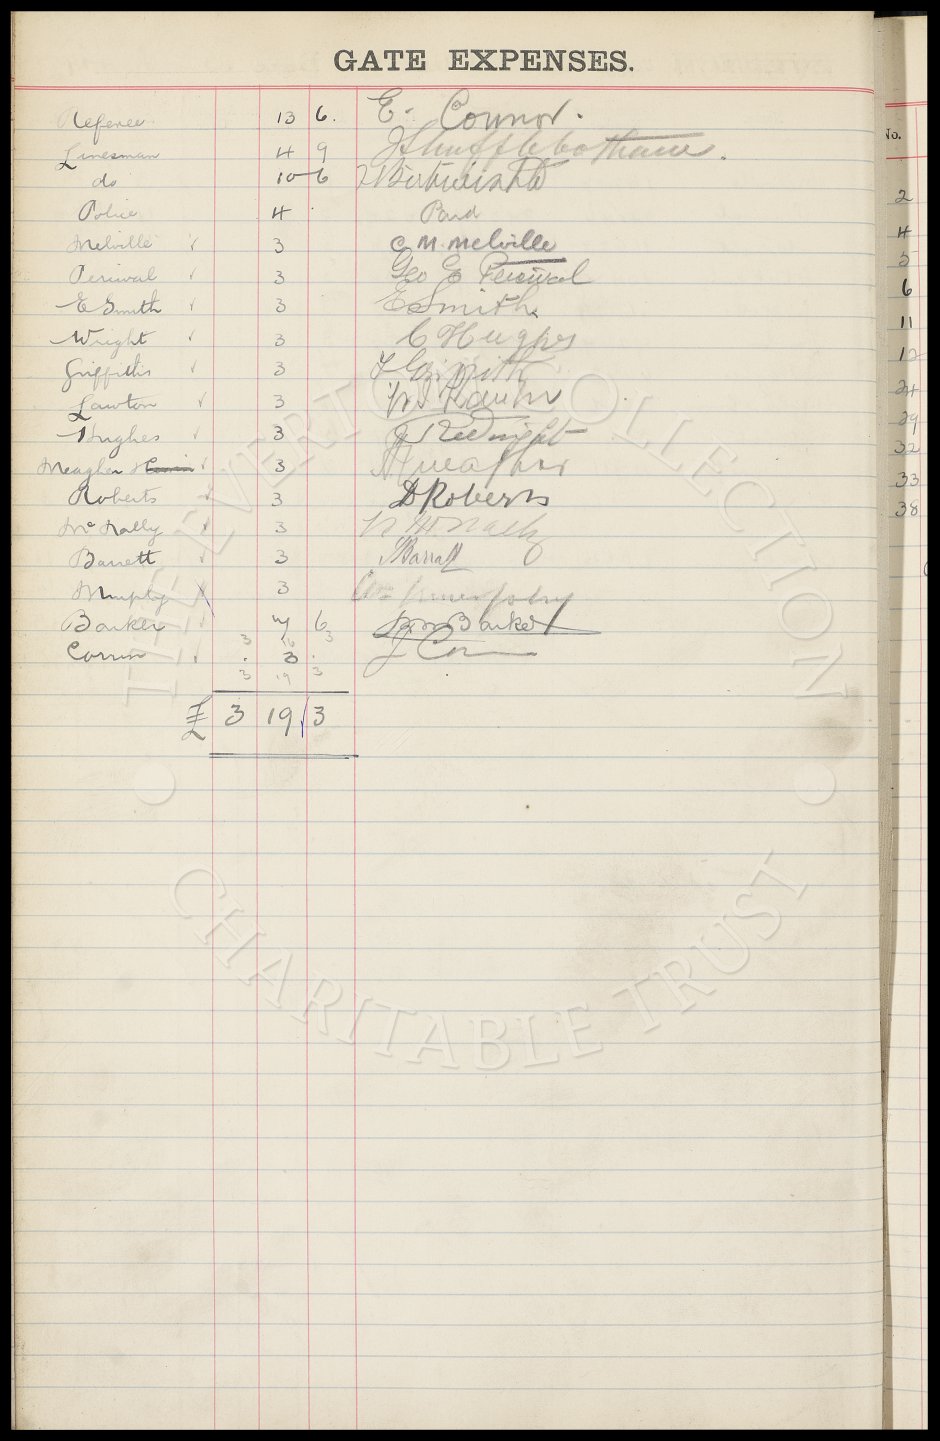 GATE EXPENSES.
Referee 13 6. E. Connor.
Linesman 4 9 J Shufflebotham.
do 10 6
Police 4 . Paid
Melville ✓ 3 C. M. Melville
Percival ✓ 3 Geo E Percival
E Smith ✓ 3 E Smith.
Wright ✓ 3 C Hughes
Griffiths ✓ 3
Lawton ✓ 3
Hughes ✓ 3
Meagher ✓ 3
Roberts ✓ 3 D Roberts
McNally ✓ 3 McNally
Barrett ✓ 3 Barratt
Murphy ✓ 3 Murphy
Barker ✓ 7 6 Barker
3 16 3
Corrin . . 3 . J Cor
3 19 3
£ 3 19 3
No.
2
4
5
6
11
12
24
29
32
33
38
THE EVERTON COLLECTION
CHARITABLE TRUST